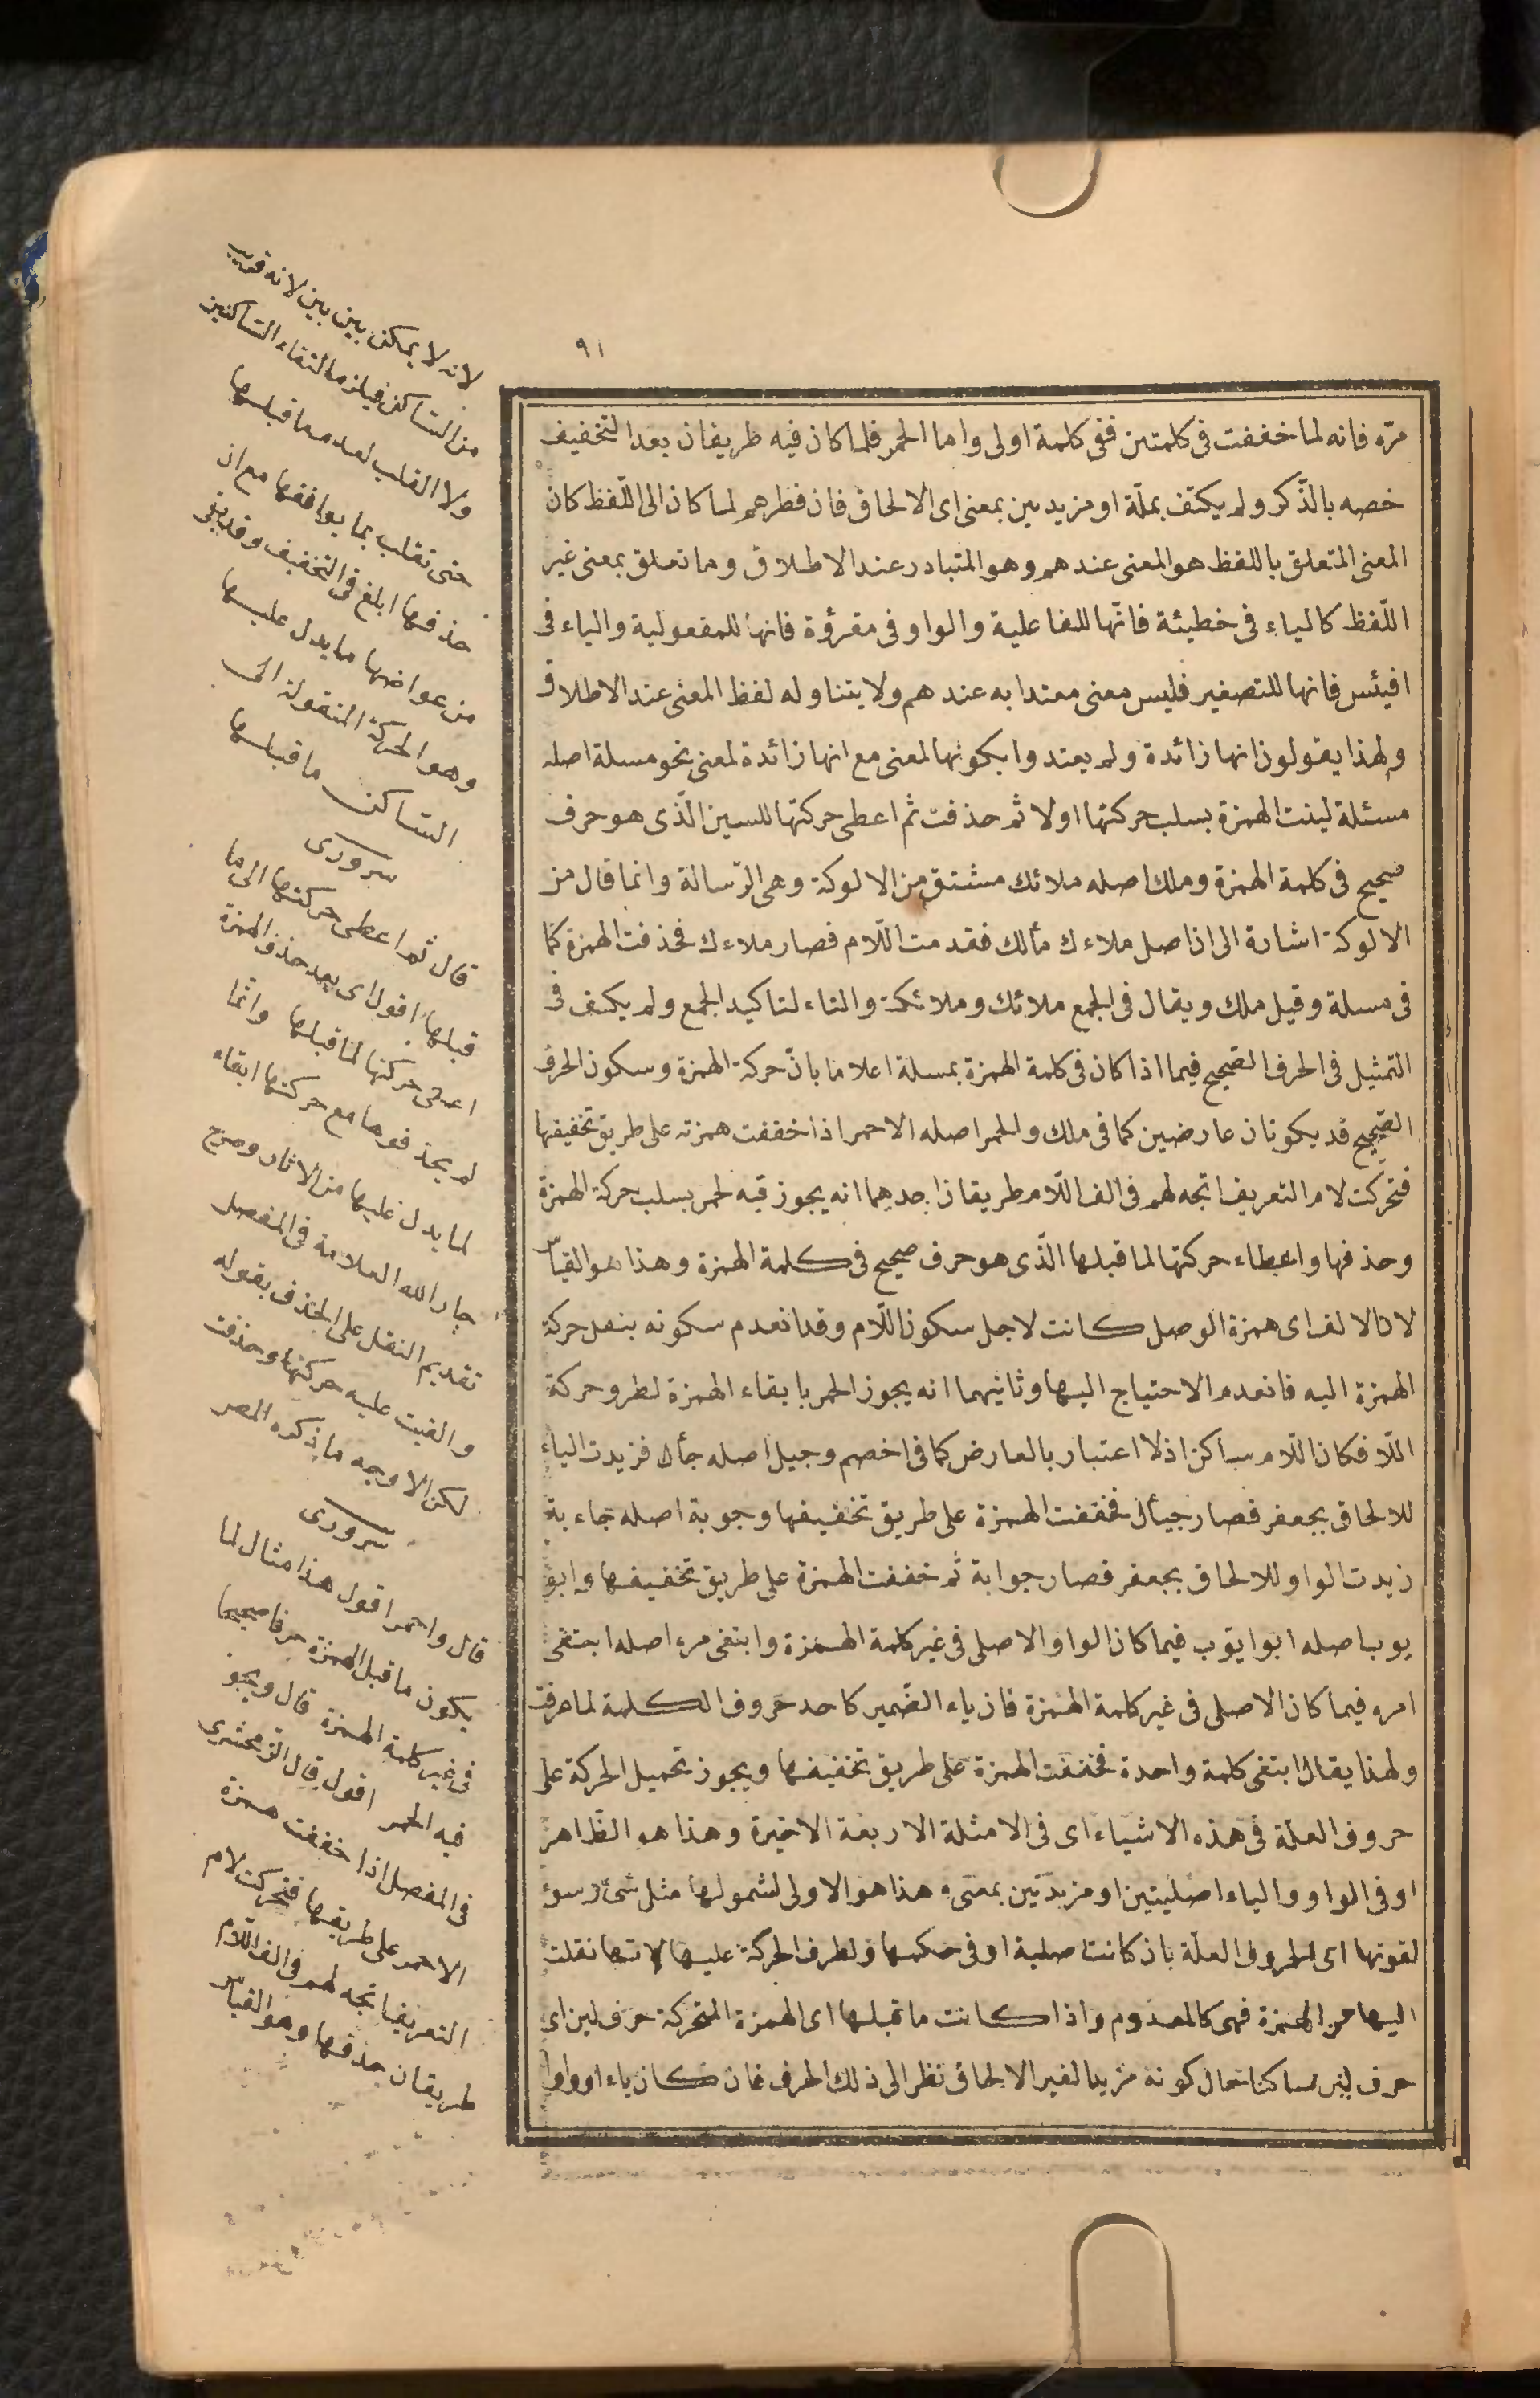 ٩١
مرّه فانه لما خففت فى كلمتين ففى كلمة اولى واما الحمر فلما كان فيه طريقان بعد التخفيف
خصه بالذّكر ولم يكتف بملّة او مزيدين بمعنى اى الالحاق فان فطرهم لما كان الى اللّفظ كان
المعنى المتعلق باللفظ هو المعنى عندهم وهو المتبادر عند الاطلاق وما تعلق بمعنى غير
اللّفظ كالياء فى خطيئة فانّها للفاعلية والواو فى مقرؤة فانها للمفعولية والياء فى
افيئس فانها للتصغير فليس معنى معتدا به عندهم ولا يتناوله لفظ المعنى عند الاطلاق
ولهذا يقولون انها زائدة ولم يعتدوا بكونها لمعنى مع انها زائدة لمعنى نحو مسلة اصله
مسئلة لينت الهمزة بسلب حركتها اولا ثم حذفت ثم اعطى حركتها للسين الّذى هو حرف
صحيح فى كلمة الهمزة وملك اصله ملائك مشتق من الالوكة وهى الرّسالة وانما قال من
الالوكة اشارة الى ان اصل ملاءك مألك فقدمت اللّام فصار ملاءك فحذفت الهمزة كما
فى مسلة وقيل ملك ويقال فى الجمع ملائك وملائكة والتاء لتاكيد الجمع ولم يكتف فى
التمثيل فى الحرف الصّحيح فيما اذا كان فى كلمة الهمزة بمسلة اعلاما بانّ حركة الهمزة وسكون الحرف
الصّحيح قد يكونان عارضين كما فى ملك والحمر اصله الاحمر اذا خففت همزته على طريق تخفيفها
فتحرّكت لام التعريف اتجه لهم فى الف اللّام طريقان احدهما انه يجوز فيه لحمر بسلب حركة الهمزة
وحذفها واعطاء حركتها لما قبلها الّذى هو حرف صحيح فى كلمة الهمزة وهذا هو القياس
لان الالف اى همزة الوصل كانت لاجل سكون اللّام وقد انعدم سكونه بنقل حركة
الهمزة اليه فانعدم الاحتياج اليها وثانيهما انه يجوز الحمر بابقاء الهمزة لطرو حركة
اللّا فكان اللّام ساكن اذ لا اعتبار بالعارض كما فى اخصم وجيل اصله جأل فزيدت الياء
للالحاق بجعفر فصار جيأل فخففت الهمزة على طريق تخفيفها وجوبة اصله جاءبة
زيدت الواو للالحاق بجعفر فصار جوابة ثم خففت الهمزة على طريق تخفيفها وابو
يوب اصله ابو ايوب فيما كان الواو الاصلى فى غير كلمة الهمزة وابتغى مره اصله ابتغى
امره فيما كان الاصلى فى غير كلمة الهمزة فان ياء الضّمير كاحد حروف الكلمة لما عرفت
ولهذا يقال ابتغى كلمة واحدة فخففت الهمزة على طريق تخفيفها ويجوز تحميل الحركة على
حروف العلة فى هذه الاشياء اى فى الامثلة الاربعة الاخيرة وهذا هو الظّاهر
او فى الواو والياء اصليتين او مزيدتين بمعنى هذا هو الاولى لشمولها مثل شئ وسوء
لقوتها اى الحروف العلّة بان كانت اصلية او فى حكمها ولطرف الحركة عليها لانّها نقلت
اليها من الهمزة فهى كالمعدوم واذا كانت ما قبلها اى الهمزة المتحركة حرف لين اى
حرف لين ساكنا حال كونه مزيدا لغير الالحاق نظر الى ذلك الحرف فان كان ياء او واوا
لانه لا يمكن بين بين لانه قريب
من السّاكن فيلزم التقاء السّاكنين
ولا القلب لعدم ما قبلها
حتى تقلب بما يوافقها مع ان
حذفها ابلغ فى التخفيف وقد بقى
من عوارضها ما يدل عليها
وهو الحركة المنقولة الى
السّاكن ما قبلها
سرورى
قال ثم اعطى حركتها الى ما
قبلها اقول اى بعد حذف الهمزة
اعطى حركتها لما قبلها وانّما
لم يحذفوها مع حركتها ابقاء
لما يدل عليها من الاثار وصرح
جار الله العلامة فى المفصل
تقديم النقل على الحذف بقوله
والقيت عليه حركتها وحذفت
لكن الاوجه ما ذكره المصر
سرورى
قال واحمر اقول هذا مثال لما
يكون ما قبل الهمزة حرفا صحيحا
فى غير كلمة الهمزة قال ويجوز
فيه الحمر اقول قال الزمخشرى
فى المفصل اذا خففت همزة
الاحمر على طريقها فتحركت لام
التعريف اتجه لهم فى الف اللّام
طريقان حذفها وهو القياس